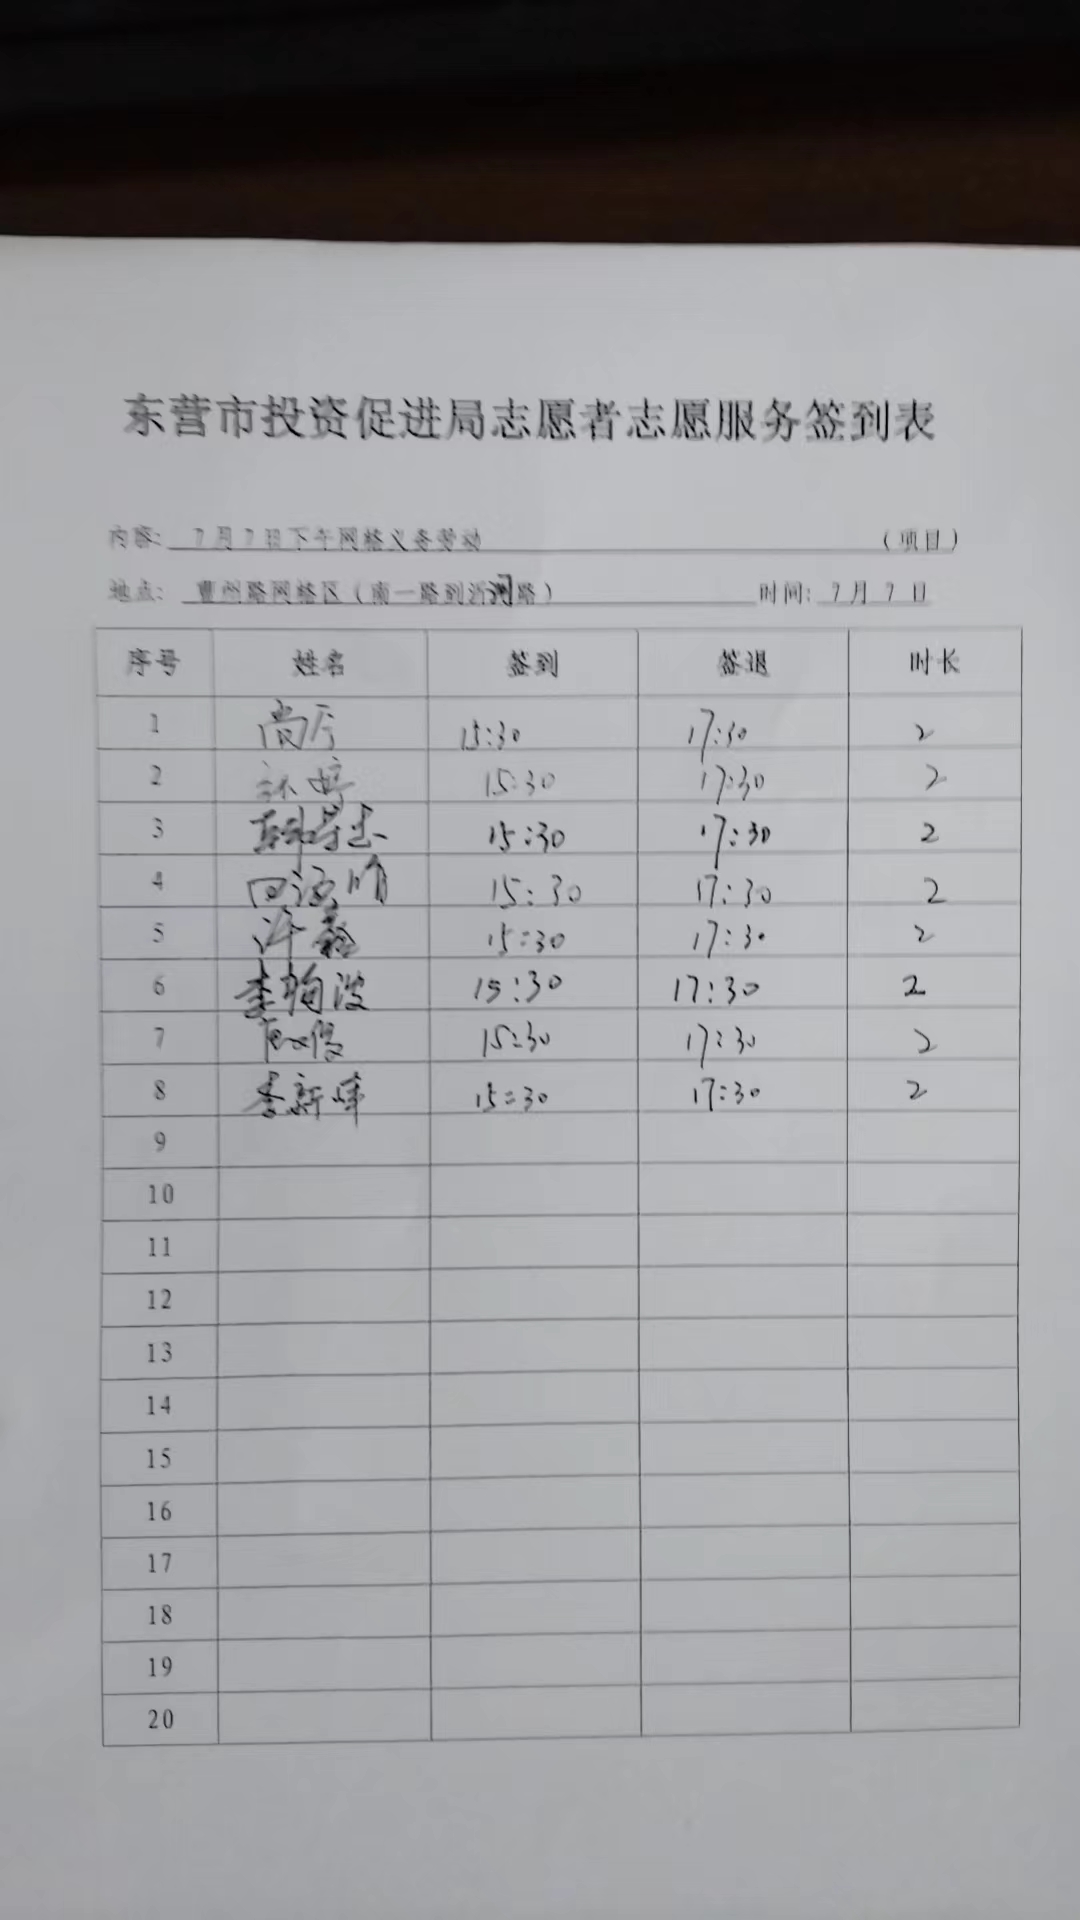 东营市投资促进局志愿者志愿服务签到表
内容: 7月7日下午网格义务劳动 (项目)
地点: 曹州路网格区(南一路到沂河路) 时间: 7月7日
序号 姓名 签到 签退 时长
1 15:30 17:30 2
2 15:30 17:30 2
3 15:30 17:30 2
4 15:30 17:30 2
5 许鑫 15:30 17:30 2
6 李梅波 15:30 17:30 2
7 15:30 17:30 2
8 李新峰 15:30 17:30 2
9
10
11
12
13
14
15
16
17
18
19
20